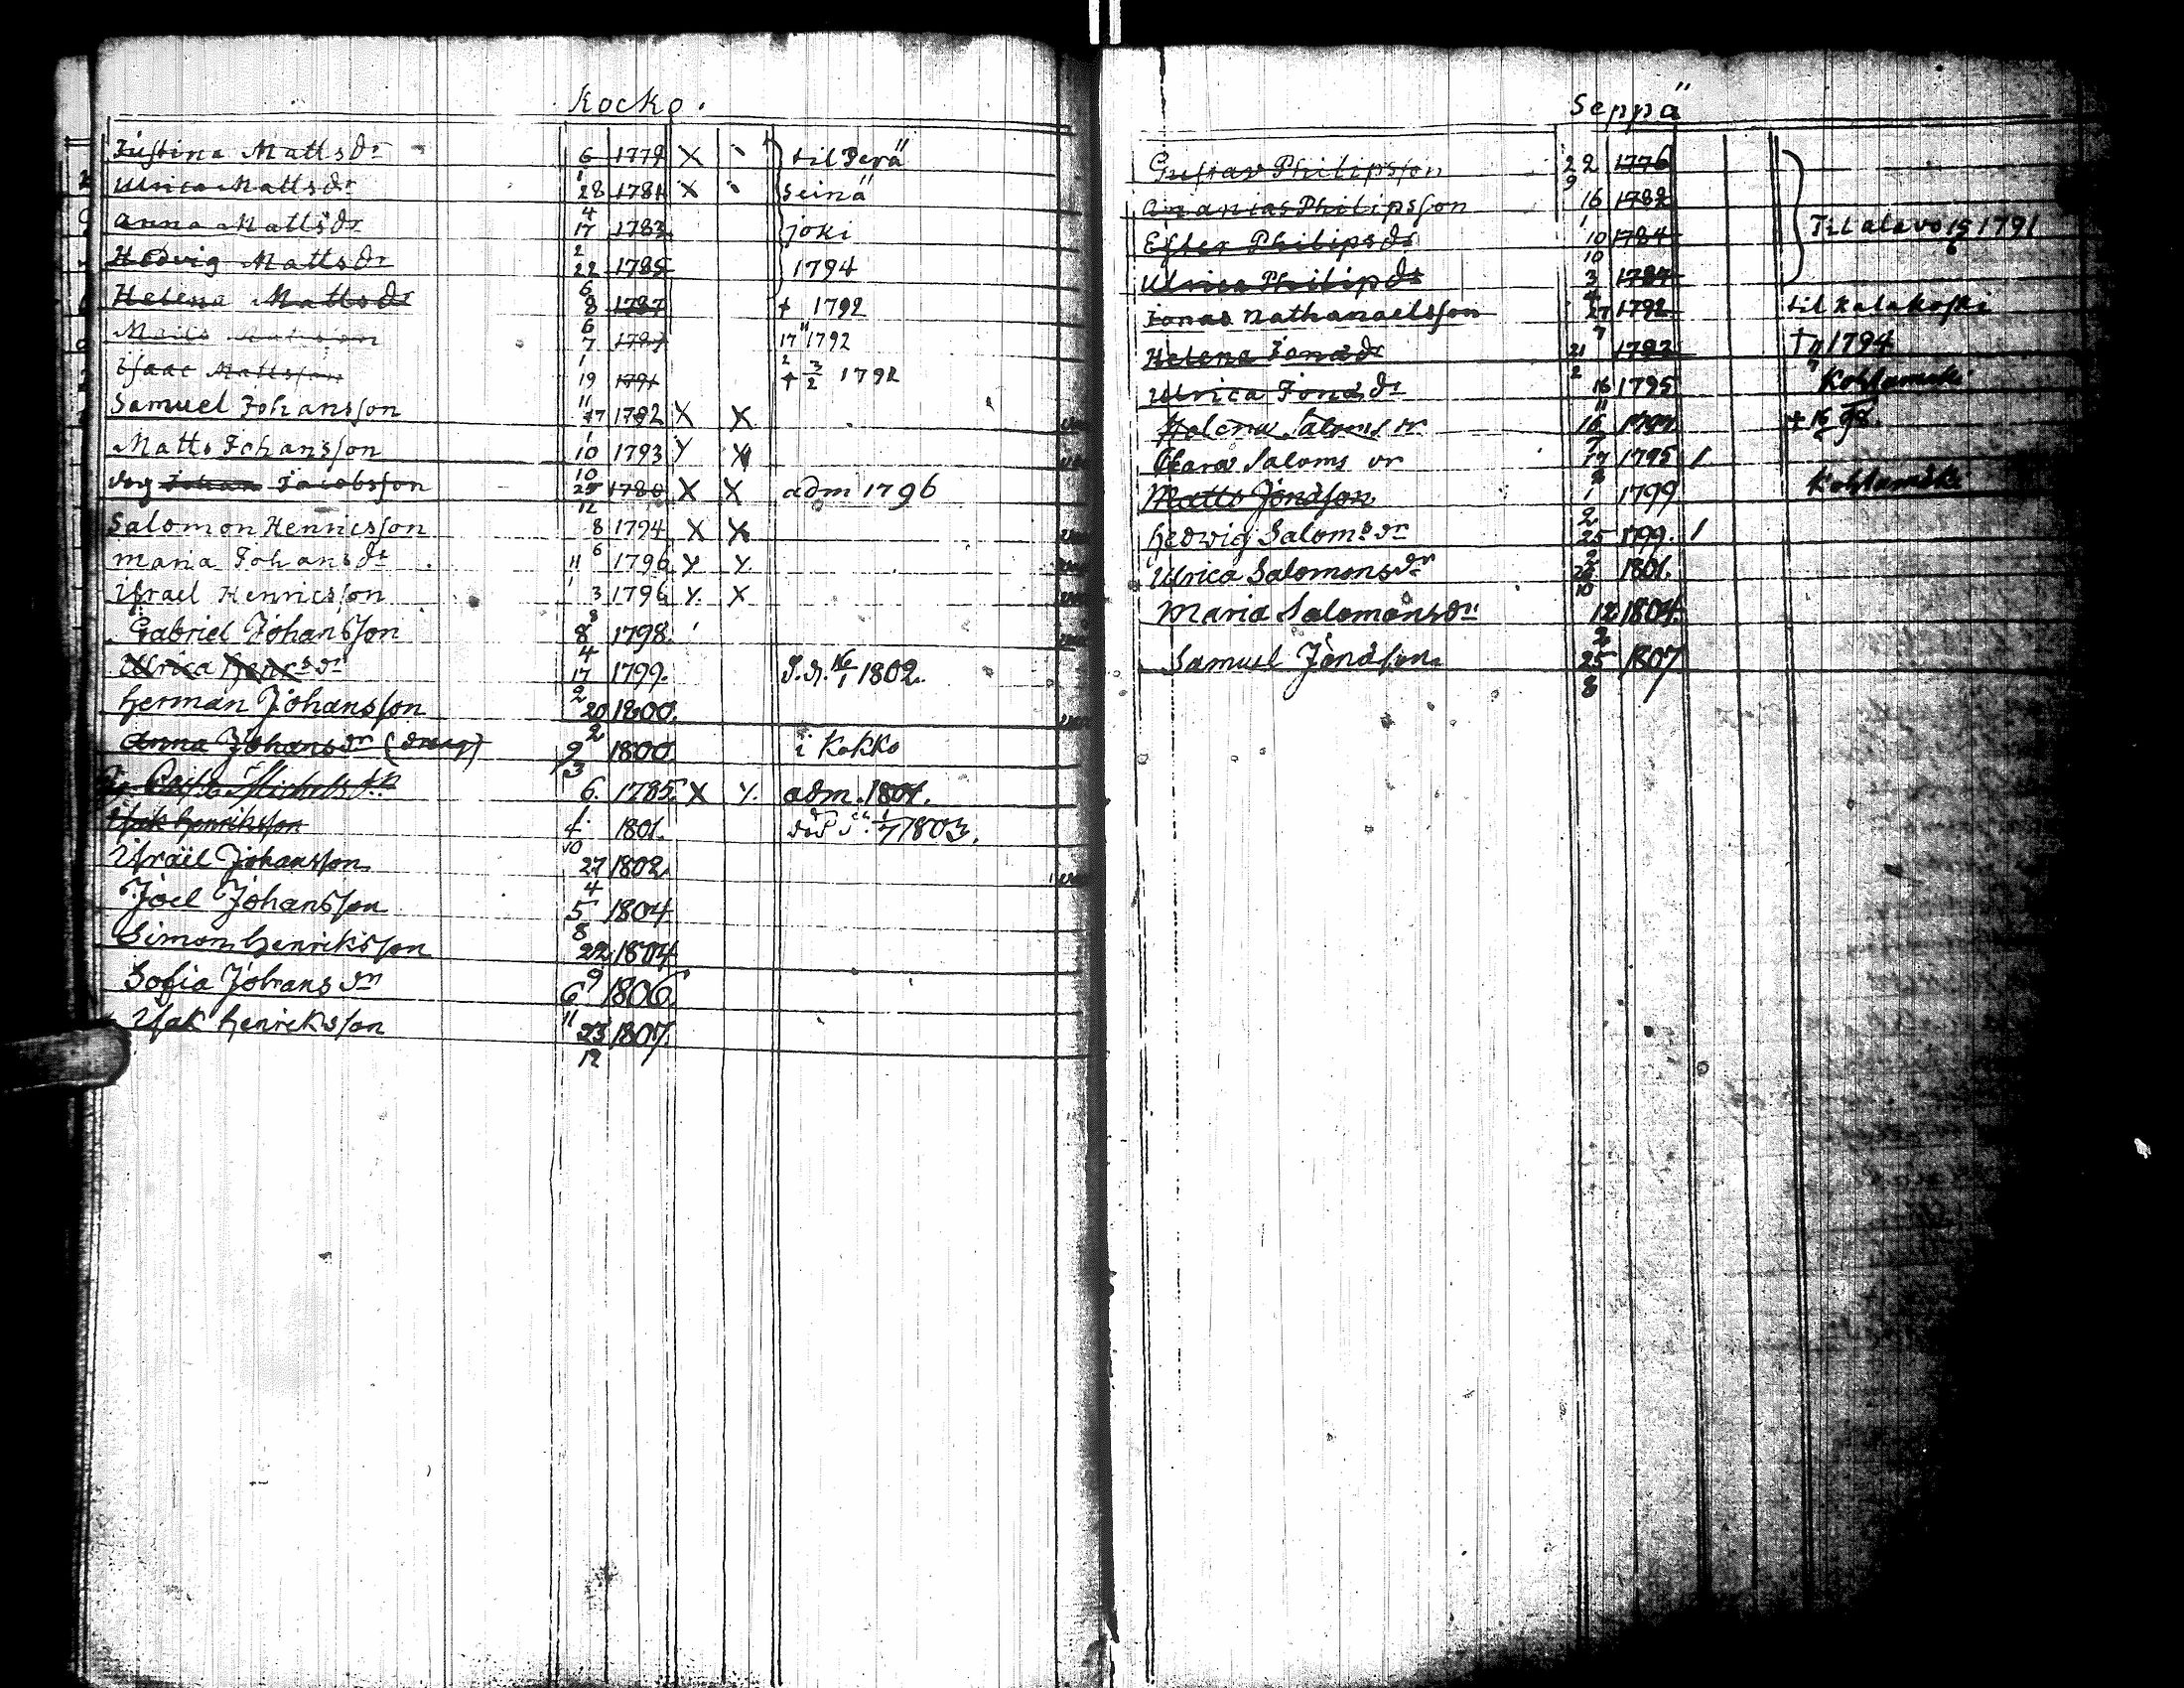 Kocko.
Justina Mattsdr 6/1 1779 X til Perä
Ulrica Mattsdr 28/4 1781 X seinä
Anna Mattsdr 17/2 1783 joki
Hedvig Mattsdr 22/6 1785 1794
Helena Mattsdr 8/6 1787 † 1792
7/1 1792
Isaac Mattsson 19/11 1791 † 3/2 1792
Samuel Johansson 1782 X X
Matts Johansson 10/10 1793 Y X
Johan Jacobsson 25/12 1780 X X adm 1796
Salomon Henricsson 8/6 1794 X X
Maria Johansdr 11/1 1796 Y Y
Israel Henricsson 3/8 1796 Y. X
Gabriel Johansson 8/4 1798.
Ulrica Henrsdr 17/2 1799. 16/1 1802.
Herman Johansson 20/2 1800.
Anna Johansdr 9/3 1800 i Kokko
Michelsdr 6. 1785. X Y. adm. 1801.
Isak Henriksson 4/10 1801. 1/7 1803.
Israël Johansson 27/4 1802
Joel Johansson 5/8 1804
Simon Henriksson 22/9 1804
Sofia Johansdr 6/11 1806.
Isak Henriksson 23/12 1807.
Seppä
Gustav Philipsson 22/9 1776
Ananias Philipsson 16/1 1782
Ester Philipsdr 10/10 1784 Til alavo 19/6 1791
Ulrica Philipdr 3/4 1787
Jonas Nathanaelsson 27/7 1792 til Kalakoski
Helena Jonasdr 21/2 1793 † 1794
Ulrica Jonadr 16/11 1795
Helena Saloms dr 16/7 1797
Clara Saloms dr 17/2 1795 1
Matts Jonasson 1/2 1799
Hedwig Salomsdr 25/2 1799. 1
Ulrica Salomonsdr 1801.
Maria Salomonsdr 12/2 1804.
Samuel Jonasson 25/8 1807